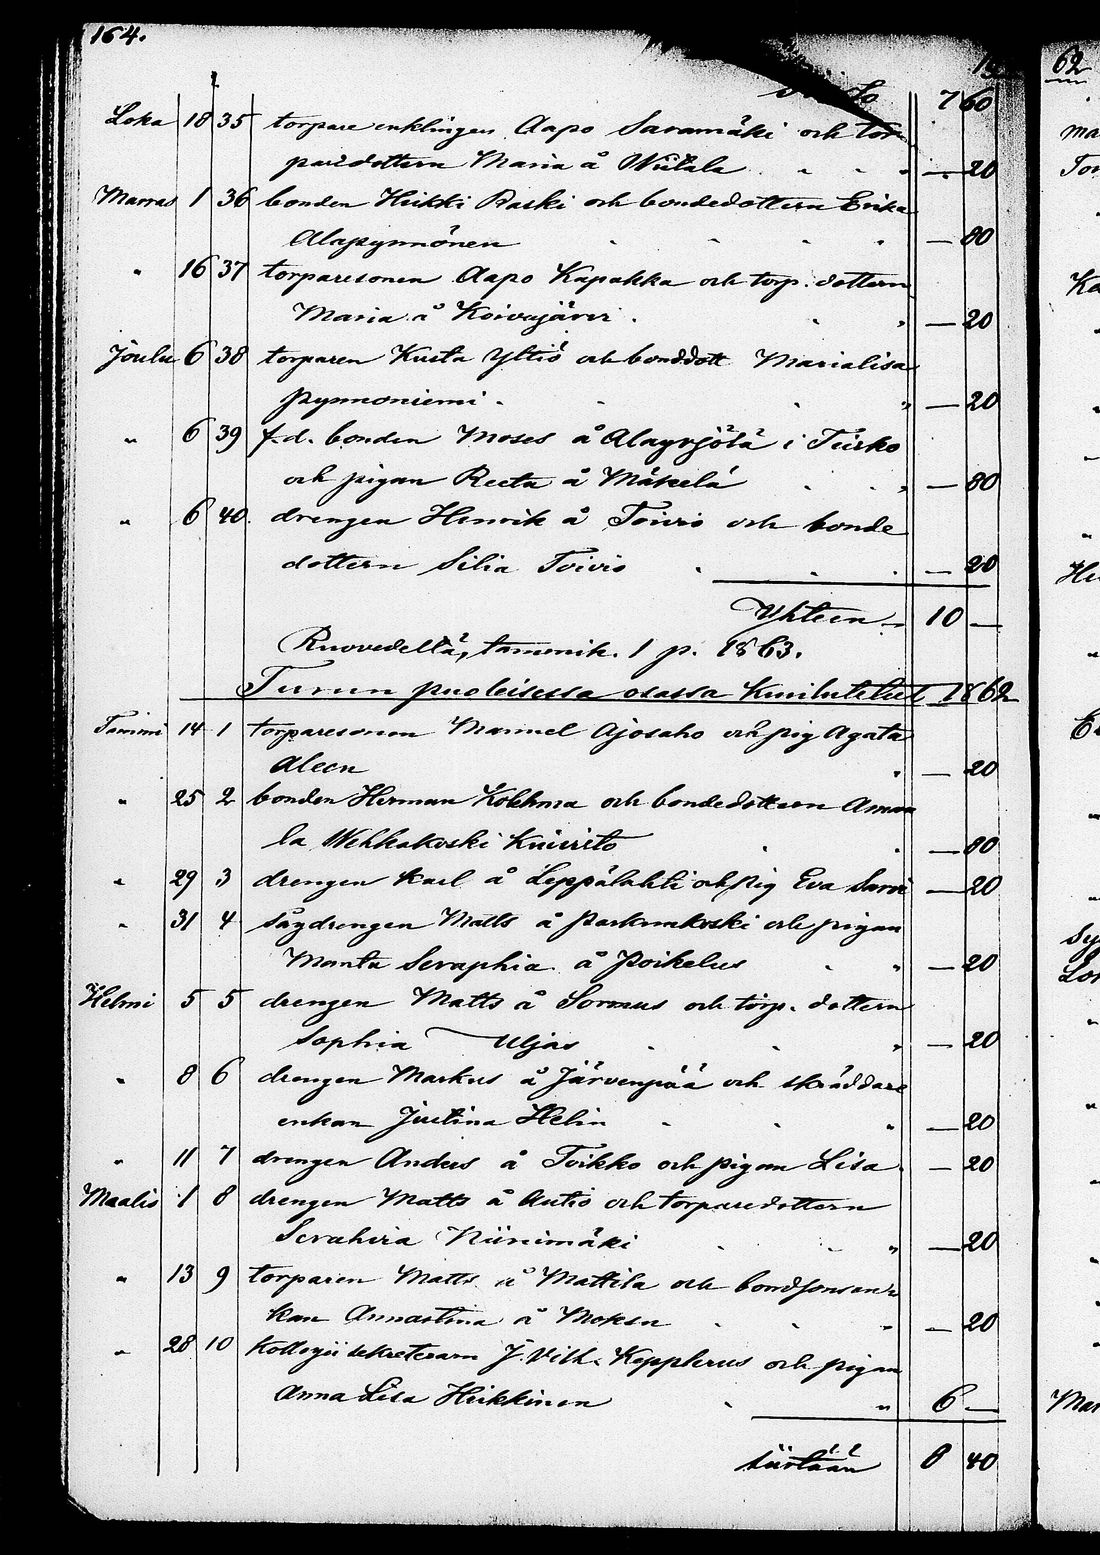 164.
7 60
Loka 18 35 torpare enklingen Aapo Saramäki och tor
paredottern Maria å Wiitala — 20
Marras 1 36 bonden Heikki Raski och bondedottern Erika
Alapynnönen — 80
" 16 37 torparesonen Aapo Kapakka och torp. dottern
Maria å Koivujärvi — 20
Joulu 6 38 torparen Kusta Yltiö och bonddott Marialisa
Pynnoniemi — 20
" 6 39 f.d. bonden Moses å i
och pigan Reeta å Mäkelä — 80
" 6 40 drengen Henrik å Toivio och bonde
dottern Silia Toivio — 20
Yhteen 10 —
Ruovedellä, tammik. 1 p. 1863.
Turun puoleisessa osassa Kuulutetut 1862
Tammi 14 1 torparesonen Manuel Ajosaho och pig Agata
Aleen — 20
" 25 2 bonden Herman Kolkhma och bondedottern Aman
la Wehkakoski — 80
" 29 3 drengen Karl å Leppälahti och pig Eva — 20
" 31 4 sågdrengen Matts å och pigan
Manta Seraphia å Poikelus — 20
Helmi 5 5 drengen Matts å Sormus och torp. dottern
Sophia Uljas — 20
" 8 6 drengen Markus å Järvenpää och skräddare
enkan Justina Helin — 20
" 11 7 drengen Anders å Toikko och pigan Lisa — 20
Maalis 1 8 drengen Matts å Autio och torparedottern
Serahira Niinimäki — 20
" 13 9 torparen Matts å Mattila och bondsonsen
kan Annastina å Moksu — 20
" 28 10 Kollegii sekreteraren J. Vilh. Kepplerus och pigan
Anna Lisa Heikkinen " 6 —
siirtään 8 40
62